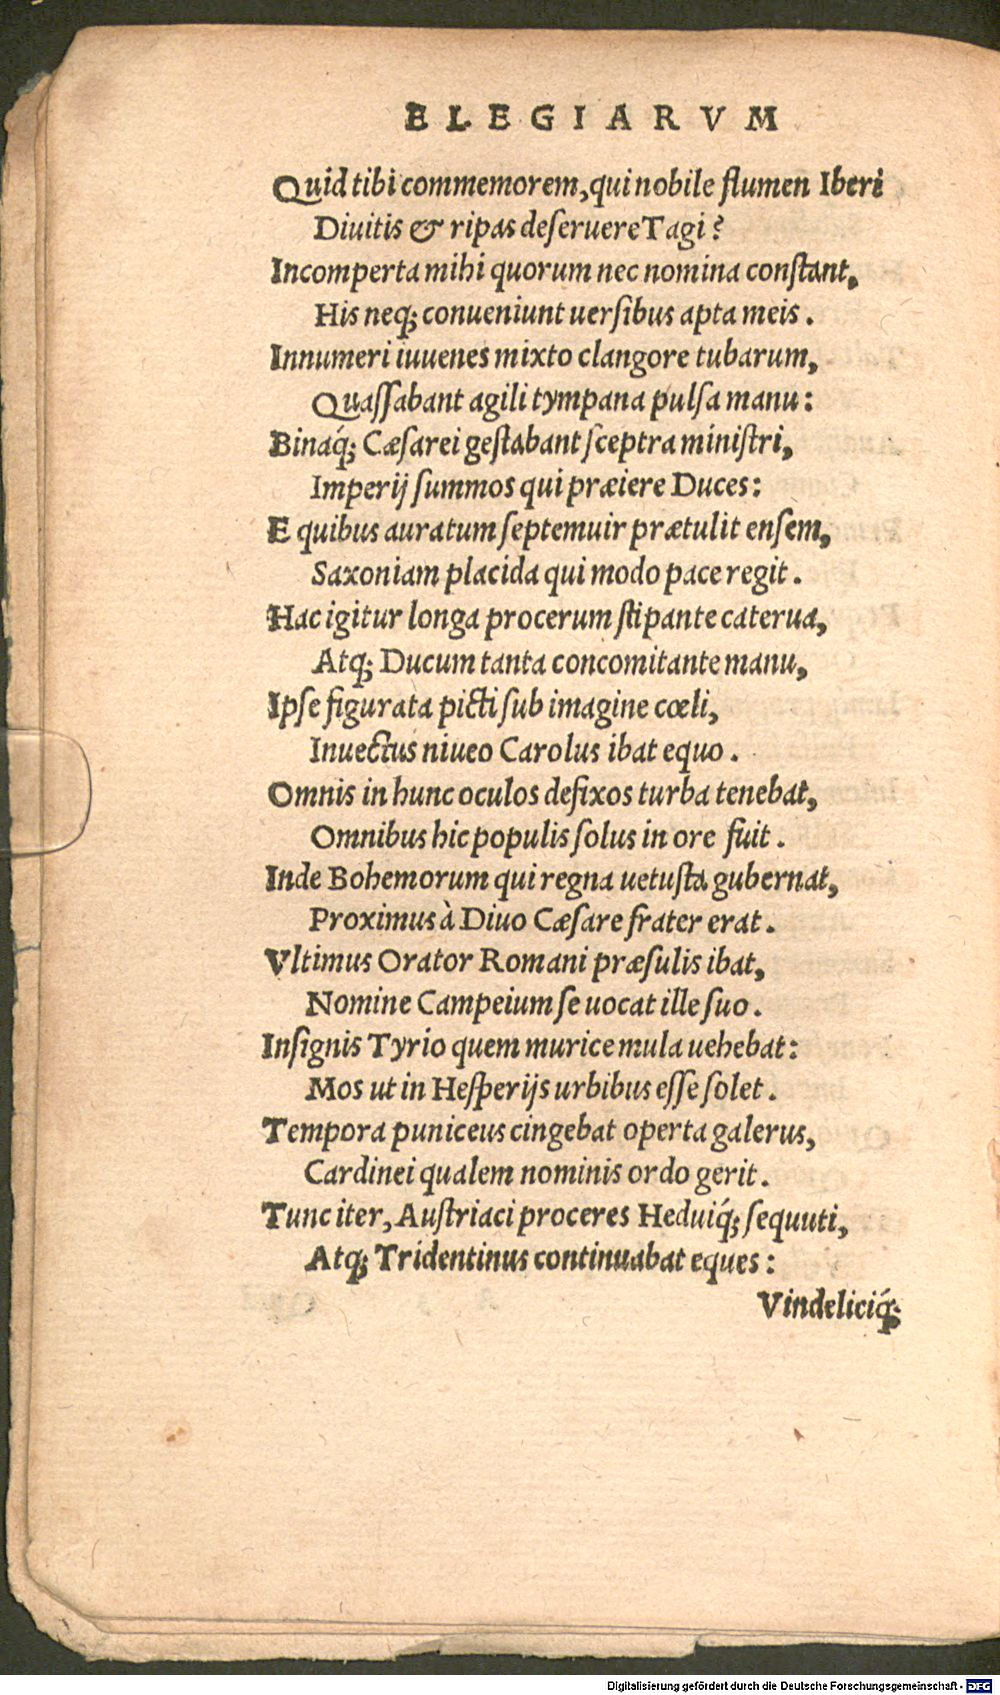 ELEGIARVM
Quid tibi commemorem, qui nobile flumen Iberi
Diuitis & ripas deſeruere Tagi?
Incomperta mihi quorum nec nomina conſtant,
His neq; conueniunt uerſibus apta meis.
Innumeri iuuenes mixto clangore tubarum,
Quaſſabant agili tympana pulſa manu:
Binaq́; Cæſarei geſtabant ſceptra miniſtri,
Imperij ſummos qui præiere Duces:
E quibus auratum ſeptemuir prætulit enſem,
Saxoniam placida qui modo pace regit.
Hac igitur longa procerum ſtipante caterua,
Atq; Ducum tanta concomitante manu,
Ipſe figurata picti ſub imagine cœli,
Inuectus niueo Carolus ibat equo.
Omnis in hunc oculos defixos turba tenebat,
Omnibus hic populis ſolus in ore fuit.
Inde Bohemorum qui regna uetuſta gubernat,
Proximus à Diuo Cæſare frater erat.
Vltimus Orator Romani præſulis ibat,
Nomine Campeium ſe uocat ille ſuo.
Inſignis Tyrio quem murice mula uehebat:
Mos ut in Heſperijs urbibus eſſe ſolet.
Tempora puniceus cingebat operta galerus,
Cardinei qualem nominis ordo gerit.
Tunc iter, Auſtriaci proceres Heduiq́; ſequuti,
Atq; Tridentinus continuabat eques:
Vindeliciq́;
Digitalisierung gefördert durch die Deutsche Forschungsgemeinschaft - DFG